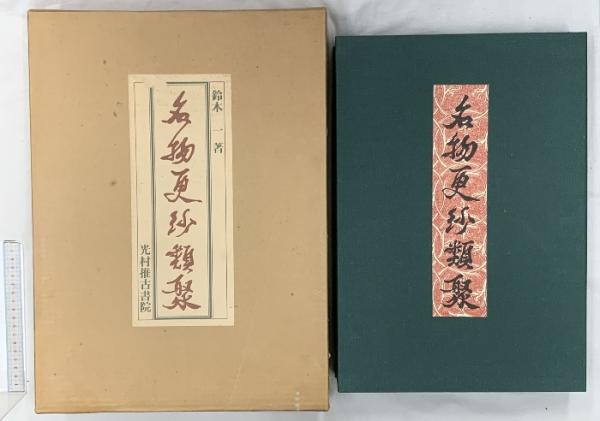 鈴木 一 著
名物更紗類聚
光村推古書院
名物更紗類聚